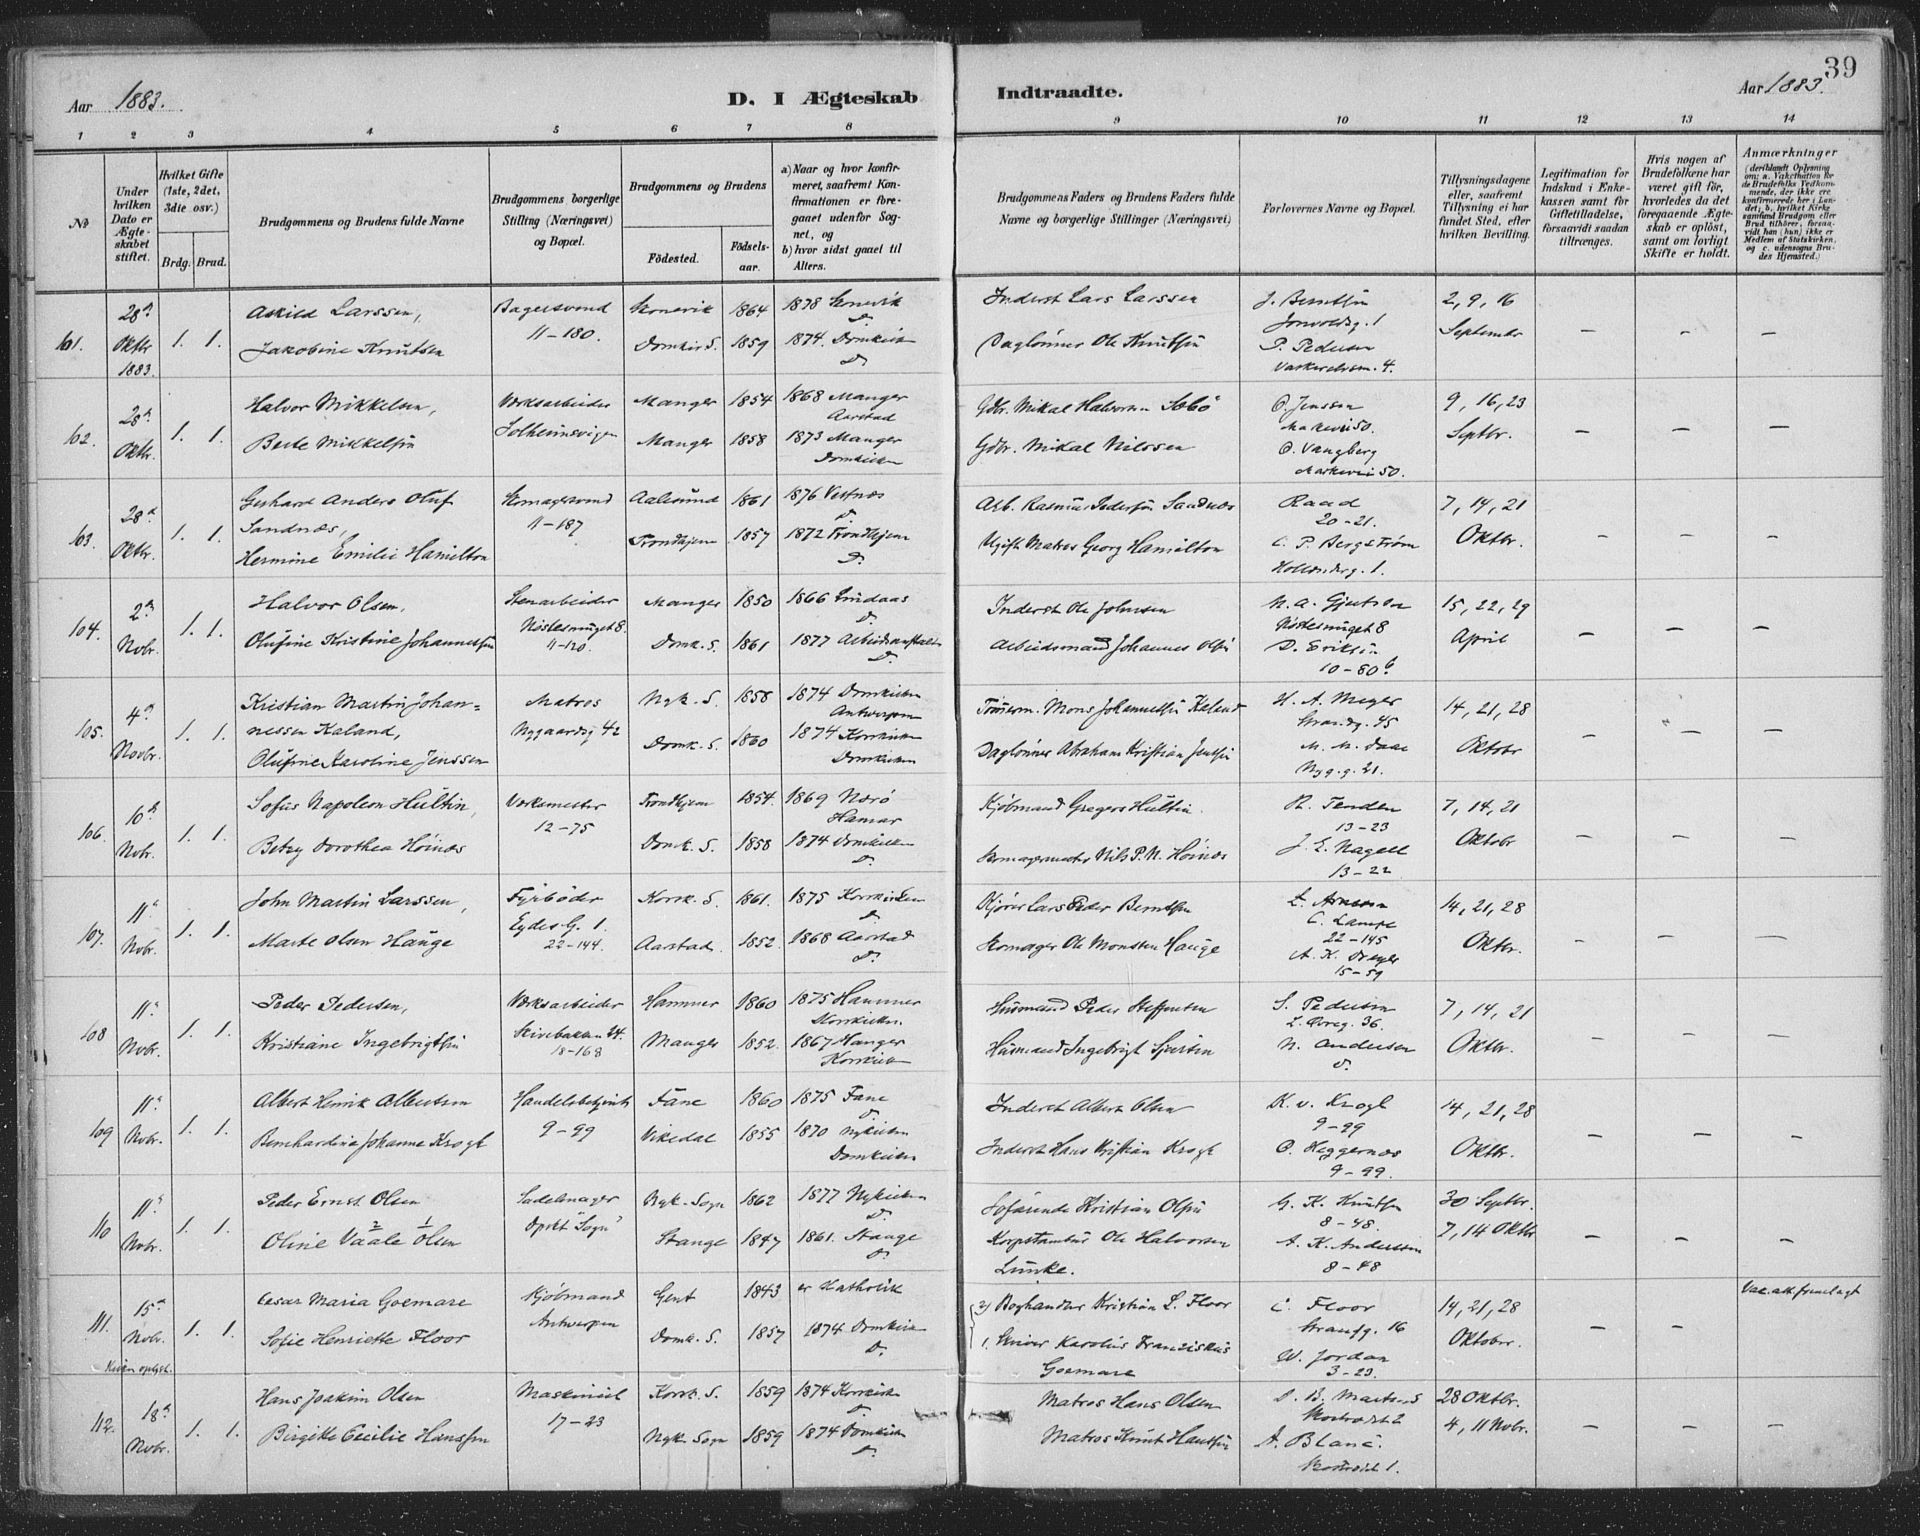 39
Aar 1883.
D. I Ægteskab
Indtraadte.
Aar 1883.
1 2 3 4 5 6 7 8 9 10 11 12 13 14
№
Under hvilken Dato er Ægteskabet stiftet.
Hvilket Gifte (1ste, 2det, 3die osv.)
Brdg. Brud.
Brudgommens og Brudens fulde Navne
Brudgommens borgerlige Stilling (Næringsvei) og Bopæl.
Brudgommens og Brudens
Födested.
Födselsaar.
a) Naar og hvor konfirmeret, saafremt Konfirmationen er foregaaet udenfor Sognet, og
b) hvor sidst gaaet til Alters.
Brudgommens Faders og Brudens Faders fulde Navne og borgerlige Stillinger (Næringsvei)
Forlovernes Navne og Bopæl.
Tillysningsdagene eller, saafremt Tillysning ei har fundet Sted, efter hvilken Bevilling.
Legitimation for Indskud i Enkekassen samt for Giftetilladelse, forsaavidt saadan tiltrænges.
Hvis nogen af Brudefolkene har været gift för, hvorledes da det foregaaende Ægteskab er oplöst, samt om lovligt Skifte er holdt.
Anmærkninger
(deriblandt Oplysning om: a. Vakcination for de Brudefolks Vedkommende, der ikke ere konfirmerede her i Landet; b. hvilket Kirkesamfund Brudgom eller Brud tilhörer, forsaavidt han (hun) ikke er Medlem af Statskirken, og c. udensogns Brudes Hjemsted.)
101. 28d Oktbr 1883. 1. 1.
Askild Larssen,
Jakobine Knutsen
Bagersvend
11-180.
Skonevik 1864 1878 Skonevik
d.
Domkir S. 1859 1874. Domkirk
d.
Inderst Lars Larssen
Daglønner Ole Knutsen
J. Berntsen
P. Pedersen
2, 9, 16
September
102. 28d Oktbr. 1. 1.
Halvor Mikkelsen,
Berte Mikkelsen
Værksarbeider
Solheimsvigen
Manger 1854 1868 Manger
Aarstad
Manger 1858 1873 Manger
Domkirken
Gdbr. Mikal Halvorsen Sæbö
Gdbr. Mikal Nilssen
O. Jenssen
Markevei 50.
O. Vangberg
Markevei 50.
9, 16, 23
Septbr.
103. 28d Oktbr. 1. 1.
Gerhard Anders Oluf
Sandnæs,
Hermine Emilie Hamilton
Skomagersvend
11-187
Aalesund 1861 1876 Vestnæs
d.
Trondhjem 1857 1872 Trondhjem
d.
Arb. Rasmus Pedersen Sandnæs
Ugift Matros Georg Hamilton
Raad
20-21.
C. P. Bergström
7, 14, 21
Oktbr.
104. 2d Novbr. 1. 1.
Halvor Olsen,
Olufine Kristine Johannessen
Stenarbeider
Nöstesmuget 8.
11-120.
Manger 1850 1866 Lindaas
d.
Domk. S. 1861 1877 Arbeidsanstalten
d.
Inderst Ole Johnsen
Arbeidsmand Johannes Olsen
Nöstesmuget 8
D. Eriksen
10-80b
15, 22, 29
April
105. 4d Novbr. 1. 1.
Kristian Martin Johan=
nessen Kaland,
Olufine Karoline Jenssen
Matros
Nygaardsg 42
Nyk. S. 1858 1874 Domkirken
Antwerpen
Domk. S. 1860 1874 Korskirken
Domkirken
Tømerm. Mons Johannessen Kaland
Daglønner Abraham Kristian Jenssen
H. A. Meyer
Strandg. 45
M. M. Daae
Nyg. g. 21.
14, 21, 28
Oktobr
106 10d Novbr. 1. 1.
Sofus Napoleon Hultin,
Betzy Dorothea Höinæs
Værkmester
12-75
Trondhjem 1854. 1869 Nærö
Hamar
Domk. S. 1858 1874 Domkirken
d.
Kjøbmand Gregers Hultin.
Skomagermester Nils P. N. Höinæs
R. Tenden
13-23
J. E. Nagell
13-22
7, 14, 21
Oktobr
107. 11d Novbr. 1. 1.
John Martin Larssen,
Marte Olsen Hauge
Fyrböder
Eydes G. 1.
22-144.
Korsk. S. 1861. 1875 Korskirken
d.
Aarstad. 1852. 1868 Aarstad
d.
Kjører Lars Peder Berntsen
Skomager Ole Monssen Hauge
C. Lampe
22-145
A. K. Meyer
15-59
14, 21, 28
Oktbr.
108 11d Novbr. 1. 1.
Peder Pedersen,
Kristiane Ingebrigtsen
Værksarbeider
Skivebakken 24.
18-168
Hammer 1860 1875 Hammer
Korskirken.
Manger 1852. 1867 Manger
Korskirken
Husmand Peder Steffensen
Husmand Ingebrigt Sjursen
S. Pedersen
L. Øvreg. 36.
N. Andersen
d.
7, 14, 21
Oktbr.
109 11d Novbr. 1. 1.
Albert Henrik Albertsen
Bernhardine Johanne Krogh
Handelsbetjent
9-99
Fane 1860 1875 Fane
d.
Vikedal 1855 1870 Nykirken
Domkirken
Inderst Albert Olsen
Inderst Hans Kristian Krogh
K. v. Krogh
9-99
O. Heggernæs
9-99.
14, 21, 28
Oktbr.
110 11d Novbr. 1. 1.
Peder Ernst Olsen
Oline Vaale Olsen
2 1
Sadelmager
Dpskt "Sogn"
Nyk. Sogn 1862 1877 Nykirken
d.
Stange 1847 1861. Stange
d.
Søfarende Kristian Olsen
Korpstambur Ole Halvorsen
Lunke.
G. K. Knutsen
8-48.
A. K. Anderssen
8-48
30 Septbr.
7, 14 Oktbr
111. 15d Novbr. 1. 1.
Kun oplyst.
Cesar Maria Goemare
Sofie Henriette Floor
Kjöbmand
Antwerpen
Gent 1843 er Katholik
Domk. S. 1857 1874 Domkirk
d.
2) Boghandler Kristian L. Floor
1. Skriver Karolus Franziskus
Goemare
C. Floor
Strandg. 16
W. Jordan
3-23.
14, 21, 28
Oktober.
Vac. att. foreilagt
112. 18d Novbr. 1. 1.
Hans Joakim Olsen
Birgitte Cecilie Hanssen
Maskinist
17-23
Korsk. S. 1859 1874 Korskirk
d.
Nyk. Sogn 1859 1874 Domkirken
d.
Matros Hans Olsen
Matros Knut Hanssen
A. Blanc.
28 Oktbr.
4, 11 Novbr.